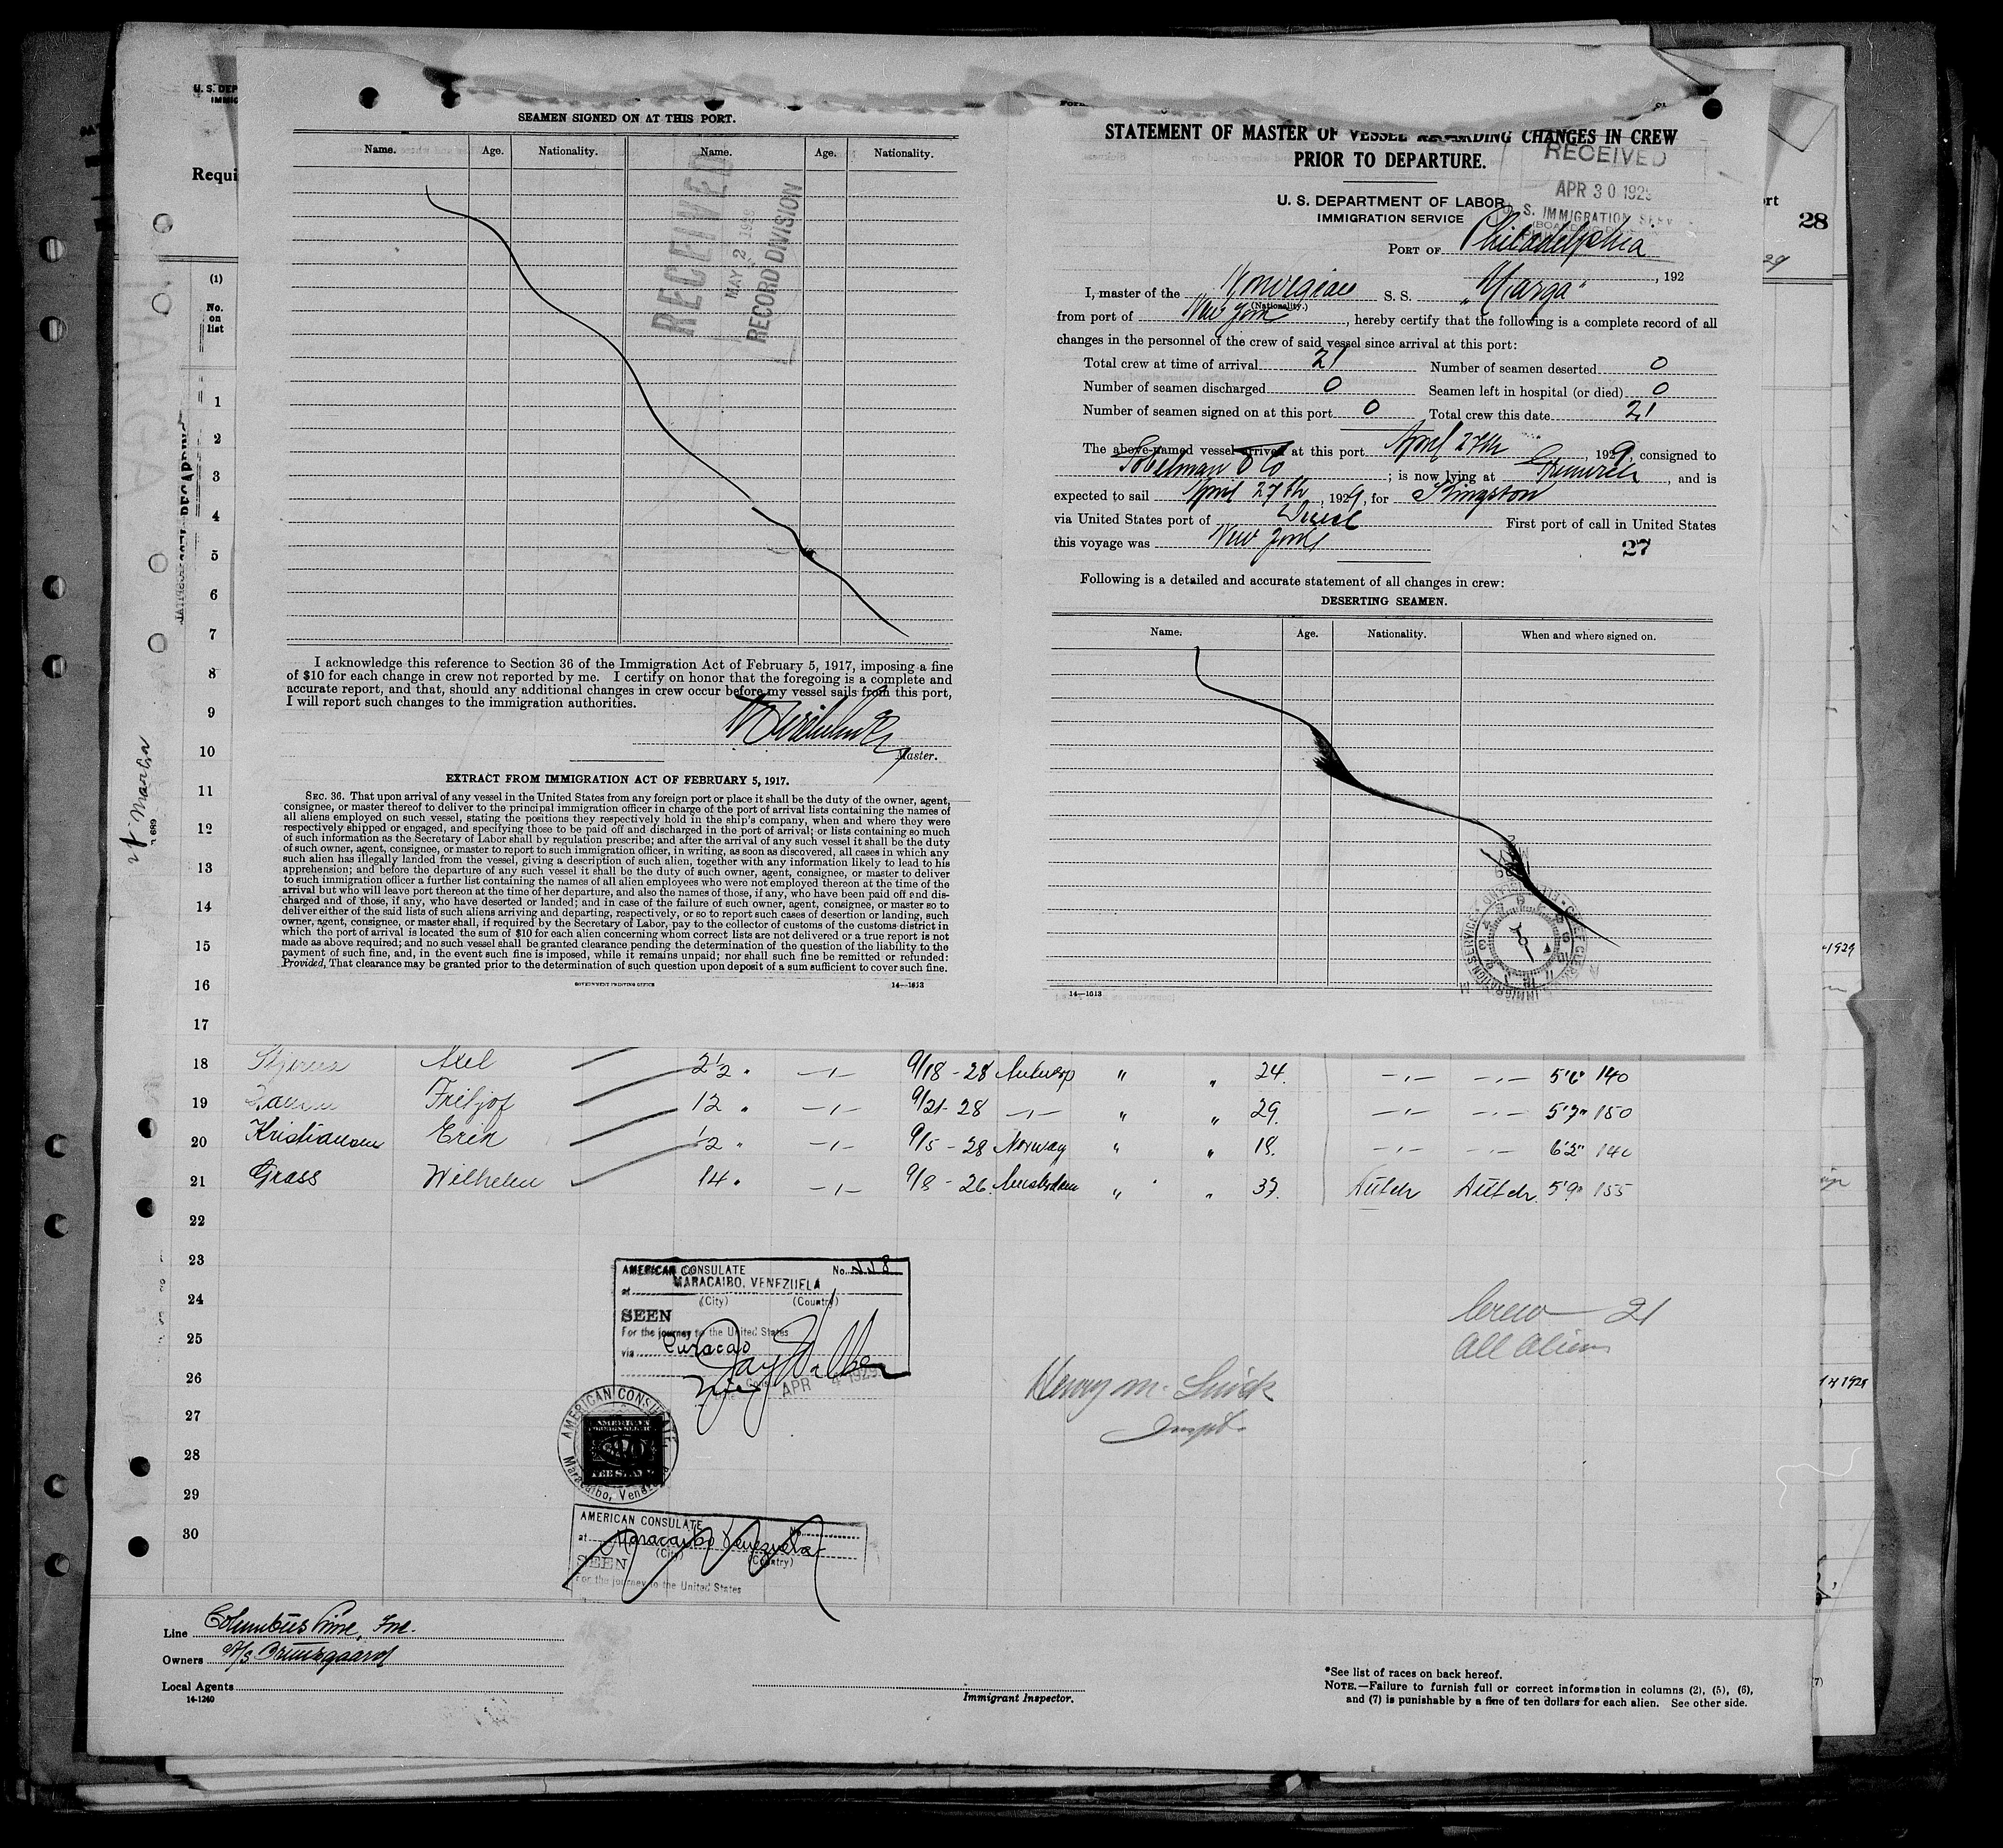 SEAMEN SIGNED ON AT THIS PORT.
Name. Age. Nationality. Name. Age. Nationality.
RECEIVED
MAY 2 1929
RECORD DIVISION
I acknowledge this reference to Section 36 of the Immigration Act of February 5, 1917, imposing a fine
of $10 for each change in crew not reported by me. I certify on honor that the foregoing is a complete and
accurate report, and that, should any additional changes in crew occur before my vessel sails from this port,
I will report such changes to the immigration authorities.
Master.
EXTRACT FROM IMMIGRATION ACT OF FEBRUARY 5, 1917.
SEC. 36. That upon arrival of any vessel in the United States from any foreign port or place it shall be the duty of the owner, agent,
consignee, or master thereof to deliver to the principal immigration officer in charge of the port of arrival lists containing the names of
all aliens employed on such vessel, stating the positions they respectively hold in the ship's company, when and where they were
respectively shipped or engaged, and specifying those to be paid off and discharged in the port of arrival; or lists containing so much
of such information as the Secretary of Labor shall by regulation prescribe; and after the arrival of any such vessel it shall be the duty
of such owner, agent, consignee, or master to report to such immigration officer, in writing, as soon as discovered, all cases in which any
such alien has illegally landed from the vessel, giving a description of such alien, together with any information likely to lead to his
apprehension; and before the departure of any such vessel it shall be the duty of such owner, agent, consignee, or master to deliver
to such immigration officer a further list containing the names of all alien employees who were not employed thereon at the time of the
arrival but who will leave port thereon at the time of her departure, and also the names of those, if any, who have been paid off and dis-
charged and of those, if any, who have deserted or landed; and in case of the failure of such owner, agent, consignee, or master so to
deliver either of the said lists of such aliens arriving and departing, respectively, or so to report such cases of desertion or landing, such
owner, agent, consignee, or master shall, if required by the Secretary of Labor, pay to the collector of customs of the customs district in
which the port of arrival is located the sum of $10 for each alien concerning whom correct lists are not delivered or a true report is not
made as above required; and no such vessel shall be granted clearance pending the determination of the question of the liability to the
payment of such fine, and, in the event such fine is imposed, while it remains unpaid; nor shall such fine be remitted or refunded:
Provided, That clearance may be granted prior to the determination of such question upon deposit of a sum sufficient to cover such fine.
GOVERNMENT PRINTING OFFICE 14—1613
STATEMENT OF MASTER OF VESSEL REGARDING CHANGES IN CREW
PRIOR TO DEPARTURE.
RECEIVED
APR 30 1929
U. S. IMMIGRATION SERV
U. S. DEPARTMENT OF LABOR
IMMIGRATION SERVICE
PORT OF Philadelphia
, 192
I, master of the Norwegian S. S. "Marga"
(Nationality.)
from port of New York, hereby certify that the following is a complete record of all
changes in the personnel of the crew of said vessel since arrival at this port:
Total crew at time of arrival 21 Number of seamen deserted 0
Number of seamen discharged 0 Seamen left in hospital (or died) 0
Number of seamen signed on at this port 0 Total crew this date 21
The above-named vessel arrived at this port April 27th, 1929, consigned to
& Co; is now lying at, and is
expected to sail April 27th, 1929, for Kingston
via United States port of Direct First port of call in United States
this voyage was New York
27
Following is a detailed and accurate statement of all changes in crew:
DESERTING SEAMEN.
Name. Age. Nationality. When and where signed on.
14—1613
U. S. DEP
IMMIG
Requi
28
(1)
No.
on
list
1
2
3
4
5
6
7
8
9
10
11
12
13
14
15
16
17
18 Axel 2½ " —"— 9/18-28 Antwerp " " 24. —"— —"— 5'6" 140
19 Fritjof 12 " —"— 9/21-28 —"— " " 29. —"— —"— 5'7" 150
20 Kristiansen Erik ½ " —"— 9/5-28 Norway " " 18. —"— —"— 6'2" 140
21 Grass Wilhelm 14 " —"— 9/8-26 Amsterdam " " 37. Dutch Dutch. 5'9" 155
22
23
24
25
26
27
28
29
30
AMERICAN CONSULATE No. 558
at MARACAIBO, VENEZUELA
(City) (Country)
SEEN
For the journey to the United States
via Curacao
APR 4 1929
AMERICAN CONSULATE
Maracaibo, Venezuela
AMERICAN
FOREIGN SERVICE
FEE STAMP
AMERICAN CONSULATE No.
at Maracaibo Venezuela
(City) (Country)
SEEN
For the journey to the United States
Crew—21
All Aliens
Henry M.
Inspt.
Line Columbus Line, Inc.
Owners A/S Bruusgaard
Local Agents
14-1240
Immigrant Inspector.
*See list of races on back hereof.
NOTE.—Failure to furnish full or correct information in columns (2), (5), (6),
and (7) is punishable by a fine of ten dollars for each alien. See other side.